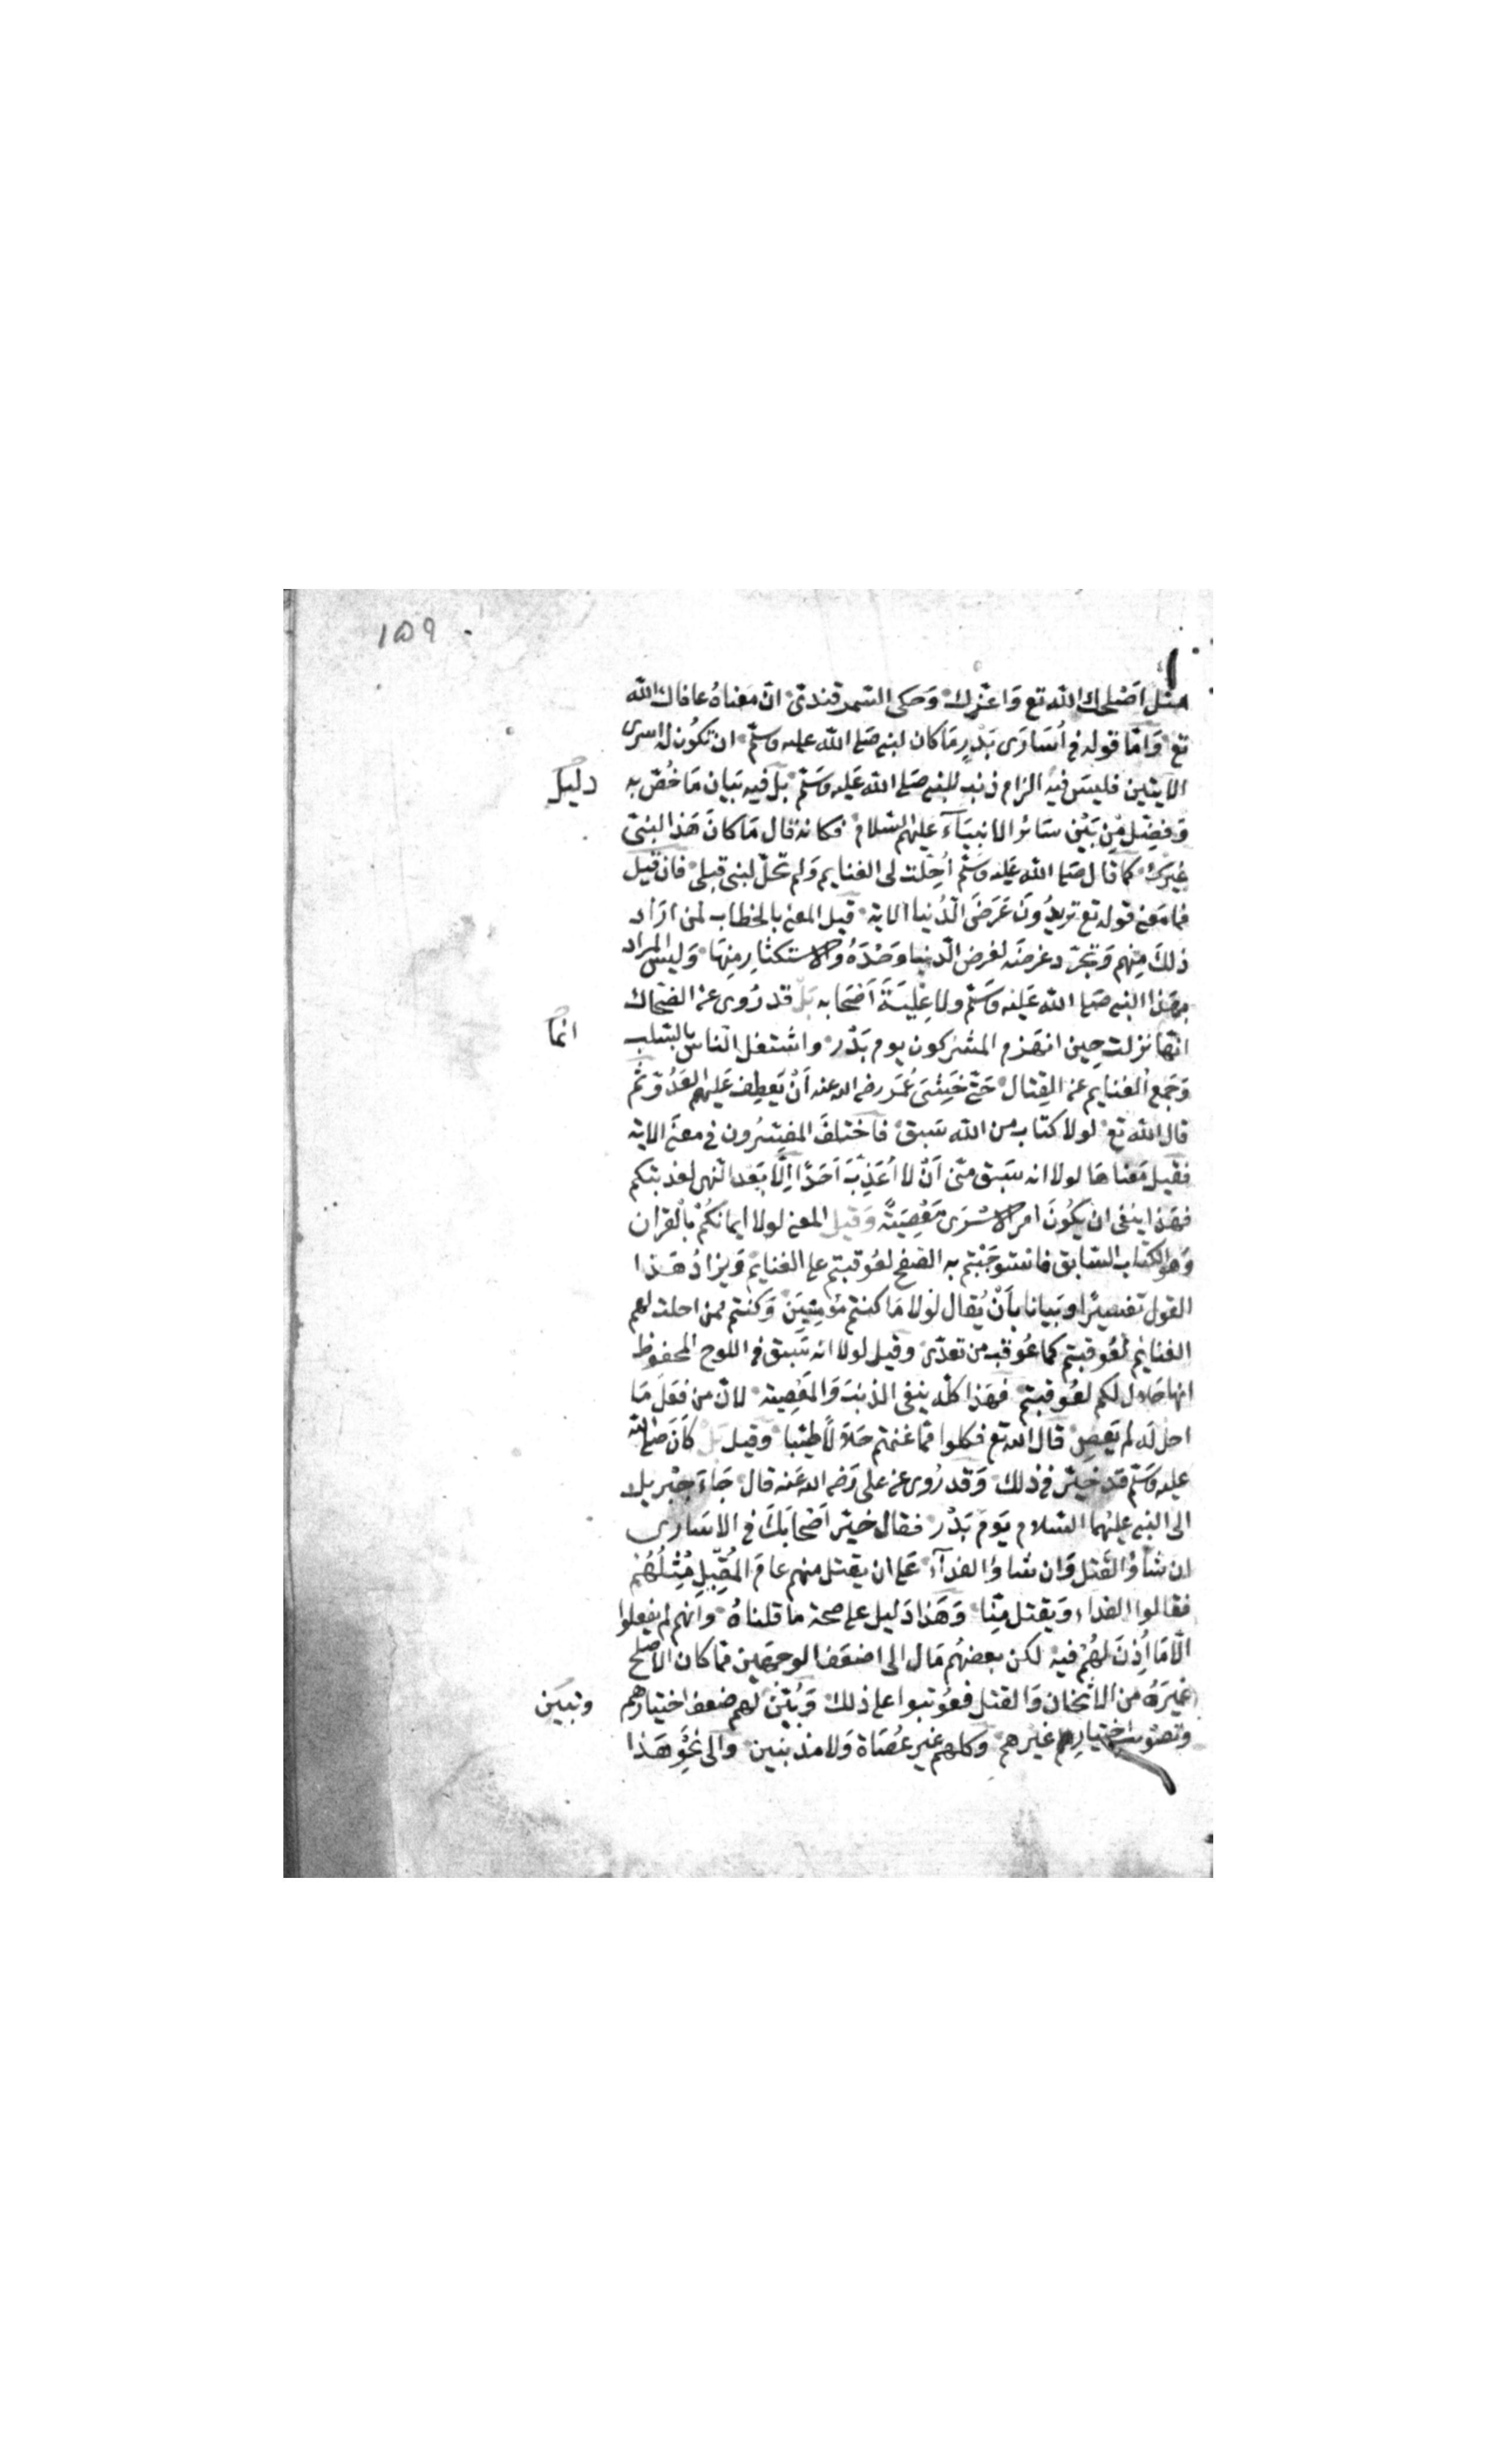 ١٥٩
مثل اَصْلحك الله تع وَاعزك وَحكى السّمرقندىّ انّ مَعْناهُ عافاك الله
تع وَامّا قوله فى اُسَارَى بَدْرٍ مَا كان لنبى صَلى الله عليه وسلّم ان تكُون له اسرى
الايتين فليسَ فيه الزام ذنب للنبى صَلى الله عَليه وسَلّم بَل فيه بَيان مَا خُصّ به
دليل
وَفضِّل مِن بَيْن سَائر الانبيَآء عليهم السّلام فكانه قال مَا كانَ هَذا لنبىّ
غيرك كما قال صَلى الله عَليه وسَلّم اُحِلّت لى الغنايم وَلم تحلّ لنبى قبلى فان قيل
فما مَعنى قوله تع تريدُونَ عَرَضَ الدّنيا الاية قيل المعنى بالخطاب لمن ارَاد
ذلكَ مِنهم وَتجَرّد غرضَه لغرض الدّنيا وَحْدَهُ والاستكثار مِنهَا وَليسَ المراد
بهَذا النبى صَلى الله عَليه وَسَلّم ولا عِلْيَةَ اَصْحَابه بَل قد رُوى عن الضحّاك
انّها نزلت حِين انهَزم المشركون يوم بَدْر واشتغل النّاس بالسّلب
انما
وَجَمع الغنايم عن القِتال حَتّى خَشِىَ عُمَر رضى الله عنه اَنْ يَعطِف عَليهم العَدُوّ ثم
قال الله تع لولا كتاب من الله سَبق فاختلفَ المفسِّرُون فى معنَى الاية
فقيل مَعْناهَا لولا انه سَبق منّى اَنْ لا اُعَذّبَ اَحَدًا اِلّا بَعد النّهى لعذبتكم
فهَذا ينفى ان يكُونَ امر الاسْرَى مَعْصِيَةً وَقيل المعنى لولا ايمانكُمْ بالقران
وَهو الكتاب السّابق فاستوجَبْتم به الصّفح لعُوقبتم على الغنايم وَيزادُ هَذا
القول تفسيرًا وبَيانا بأنْ يُقال لَولا مَا كنتم مُؤمِنِيَن وَكنتم ممن احلت لهم
الغنايم لعُوقبتم كما عُوقب من تعدّى وقيل لولا انه سَبق فى اللوح المحفوظ
انها حَلال لكم لعُوقبتم فهَذا كلّه ينفى الذنبَ وَالمَعْصِية لانّ من فعَلَ مَا
احل لَه لم يَعصِ قال الله تع فكلوا ممّا غنمتم حَلاَلاً طيّبا وقيل بَلْ كَانَ صَلى الله
عليه وَسَلّم قد خيّر فى ذلك وَقد رُوى عن على رَضى الله عَنه قال جَاءَ جبْريل
الى النبى عليْهما السّلام يَومَ بَدْر فقال خيّر اَصْحابَكَ فى الاسَارى
ان شآؤا القَتل وَان شاؤا الفدآء عَلى ان يقتل منهم عامَ المُقبِلِ مِثْلُهُمْ
فقالوا الفداء وَيقتل مِنّا وَهَذا دَليل على صحة ما قلناهُ وانهم لم يفعلوا
الّا مَا اُذِنَ لهُمْ فيه لكن بعضهُم مَال الى اضعَف الوجهَين ممّا كان الاصْلح
غيرَهُ من الاثخان وَالقتل فعُوتبوا على ذلك وَبُيّنَ لهم ضعف اختيارهم
وتبيين
وتصْويب اختيارِ غيرهم وكلهم غير عُصَاة وَلا مذنبين وَالى نحْوِ هَذا